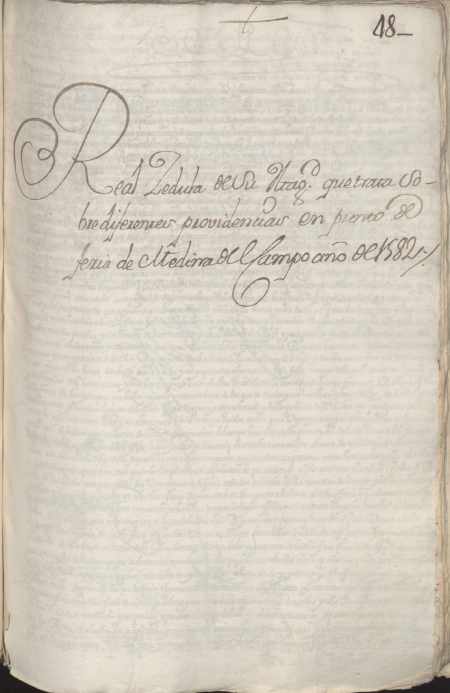 18-
Real Zedula de Su Mag.d que trata So-
bre diferentes providencias en punto de
feria de Medina del Campo año de 1582,,